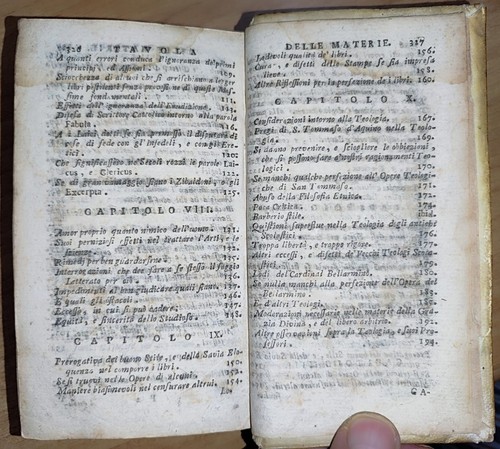 326 TAVOLA
A quanti errori conduca l'ignoranza de' primi
principj, ed Assiomi. 109.
Sciocchezza di alcuni che si arrischiano a legger
libri pestilenti senza provvisione di queste Mas-
sime fondamentali. 111.
Effetti dell'ignoranza dell'Erudizione. 112.
Difesa di Scrittor Cattolico intorno alla parola
Fabula. 116.
A i Laici dotti se sia permesso il disputare di
cose di fede con gl'Infedeli, e con gli Ere-
tici. 120.
Che significassero ne' Secoli rozzi le parole Lai-
cus, e Clericus. 122.
Se di gran vantaggio siano i Zibaldoni, o gli
Excerpta. 125.
CAPITOLO VIII.
Amor proprio quinto nimico dell'uomo. 131.
Suoi perniziosi effetti nel trattare l'Arti, e le
scienze. 133.
Rimedj per ben guardarsene. 135.
Interrogazioni che dee fare a se stesso il saggio
Letterato per ciò. 136.
Impedimenti al ben giudicare quali siano. 137.
E quali gli ostacoli.
Eccesso, in cui si può cadere.
Equità, e sincerità dello Studioso.
CAPITOLO IX.
Prerogative del buono Stile, e della Savia Elo-
quenza nel comporre i libri. 150.
Se si truovi nelle Opere di alcuni. 152.
Maniere biasimevoli nel censurare altrui. 154.
Lo-
DELLE MATERIE. 327
Lodevoli qualità de' libri. 156.
Cura, e difetti delle Stampe se sia impresa
lieve. 158.
Altre Riflessioni per la persezione de i libri. 160.
CAPITOLO X.
Considerazioni intorno alla Teologia. 167.
Pregi di S. Tommaso d'Aquino nella Teolo-
gia. 169.
Si danno prevenire, e sciogliere le obbiezioni
che si possono fare a' nostri ragionamenti Teo-
logici. 170.
Se manchi qualche perfezione all'Opere Teologi-
che di San Tommaso. 171.
Abuso della Filosofia Etnica. 172.
Poca Critica. 174.
Barbarie stile. ibid.
Quistioni superflue nella Teologia degli antichi
Scolastici. 175.
Troppa libertà, e troppo rigore. 177.
Altri eccessi, e difetti de' Vecchi Teologi Scola-
stici. 179.
Lodi del Cardinal Bellarmino. 180.
Se nulla manchi alla perfezione dell'Opere del
Bellarmino. 182.
E d'altri Teologi. 184.
Moderazioni necessarie nelle materie della Gra-
zia Divina, e del libero arbitrio. 188.
Altre osservazioni sopra la Teologia, e suoi Pro-
fessori. 194.
CA-